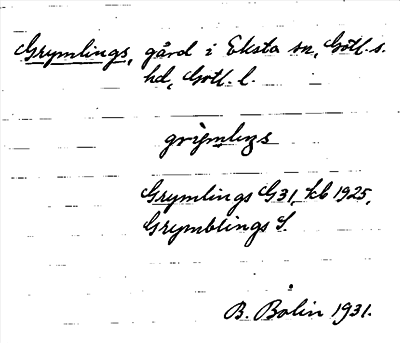 Grymlings, gård i Eksta sn, Gotl. s.
hd, Gotl. l.
Grymlings G31, kb 1925,
Grymblings S.
B. Bolin 1931.